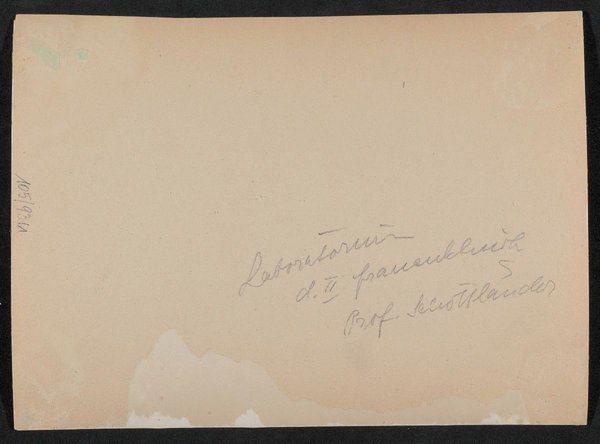 Laboratorium
d. II frauenklinik
Prof. Schottländer